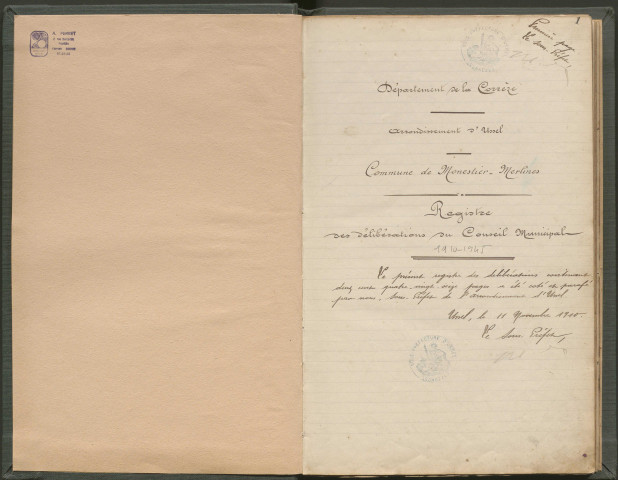 1
Première page
Le Sous-Préfet
Département de la Corrèze
Arrondissement d'Ussel
Commune de Monestier-Merlines
Registre
des délibérations du Conseil Municipal
1910-1945
Le présent registre des délibérations contenant
deux cent quatre-vingt seize pages a été coté et paraphé
par nous, Sous-Préfet de l'arrondissement d'Ussel
Ussel, le 11 Novembre 1910
Le Sous-Préfet,